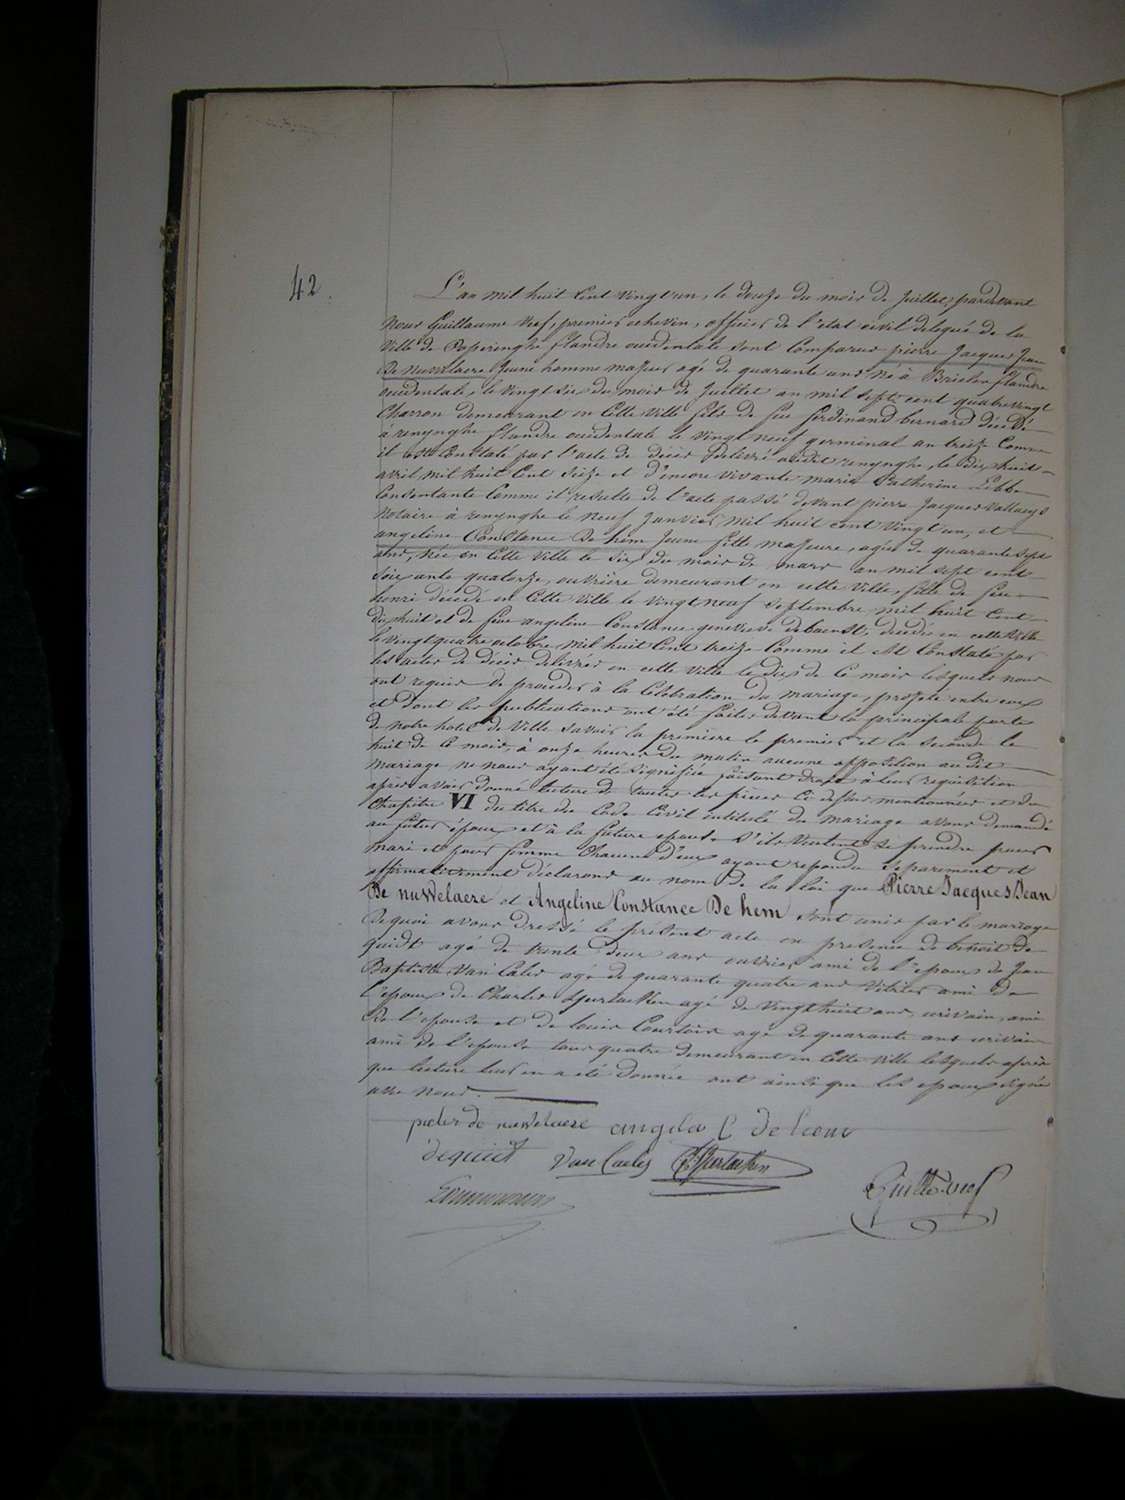 42.
L'an mil huit Cent vingt un, le douze du mois de Juillet, pardevant
Nous Guillaume Vref, premier echevin, officier de l'etat civil delegué de la
Ville de Poperinghe flandre occidentale sont Comparus pierre Jacques Jean
De Nuwelaere Jeune homme majeur agé de quarante ans Né à flandre
occidentale, le vingt six du mois de Juillet an mil sept cent quatre vingt
Charron demeurant en Cette Ville fils de feu ferdinand bernard décédé
à renynghe flandre occidentale le vingt neuf germinal an treize Comme
il est Constaté par l'acte de décès delivré audit renynghe, le dix huit
avril mil huit Cent seize et d'encore vivante marie Catherine
Consentante Comme il resulte de l'acte passé devant pierre Jacques
Notaire à renynghe le neuf Janvier mil huit cent vingt un, et
angeline Constance De hem Jeune fille majeure, agée de quarante sept
ans, née en Cette Ville le six du mois de mars an mil sept cent
soixante quatorze, ouvrière demeurant en cette Ville, fille de feu
henri décédé en Cette Ville le vingt neuf septembre mil huit Cent
dix huit et de feue angeline Constance genevieve debaenst, décédée en cette Ville
le vingt quatre octobre mil huit Cent treize Comme il est Constaté par
les actes de décès delivrés en cette Ville le dix de Ce mois lesquels nous
ont requis de proceder à la Célébration du mariage, projeté entre eux
et dont les publications ont été faites devant la principale porte
de notre hotel de Ville savoir la premiere le premier et la seconde le
huit de Ce mois, à onze heures du matin aucune opposition au dit
mariage ne nous ayant été signifiée faisant droit à leur requisition
après avoir donné lecture de toutes les pièces Ci dessus mentionnées et du
Chapitre VI du titre du Code Civil intitulé du mariage avons demandé
au futur époux et à la future epouse s'ils veulent se prendre pour
mari et pour femme Chacun d'eux ayant repondu separement et
affirmativement déclarons au nom de la loi que Pierre Jacques Jean
De nuwelaere et Angeline Constance De hem sont unis par le mariage
De quoi avons dressé le présent acte en presence de benoit de
quidt agé de trente deux ans ouvrier ami de l'epoux de Jean
Baptiste Van Cales agé de quarante quatre ans Vitrier ami de
l'epoux de Charles agé de vingt huit ans, ecrivain, ami
De l'epouse et de louis Courtois agé de quarante ans ecrivain
ami de l'epouse tous quatre demeurant en Cette Ville lesquels après
que lecture leur en a été donnée ont ainsi que les epoux signé
avec nous.
pieter de nuwelaere angela C de hem
dequidt Van Cales
Guille. Vref